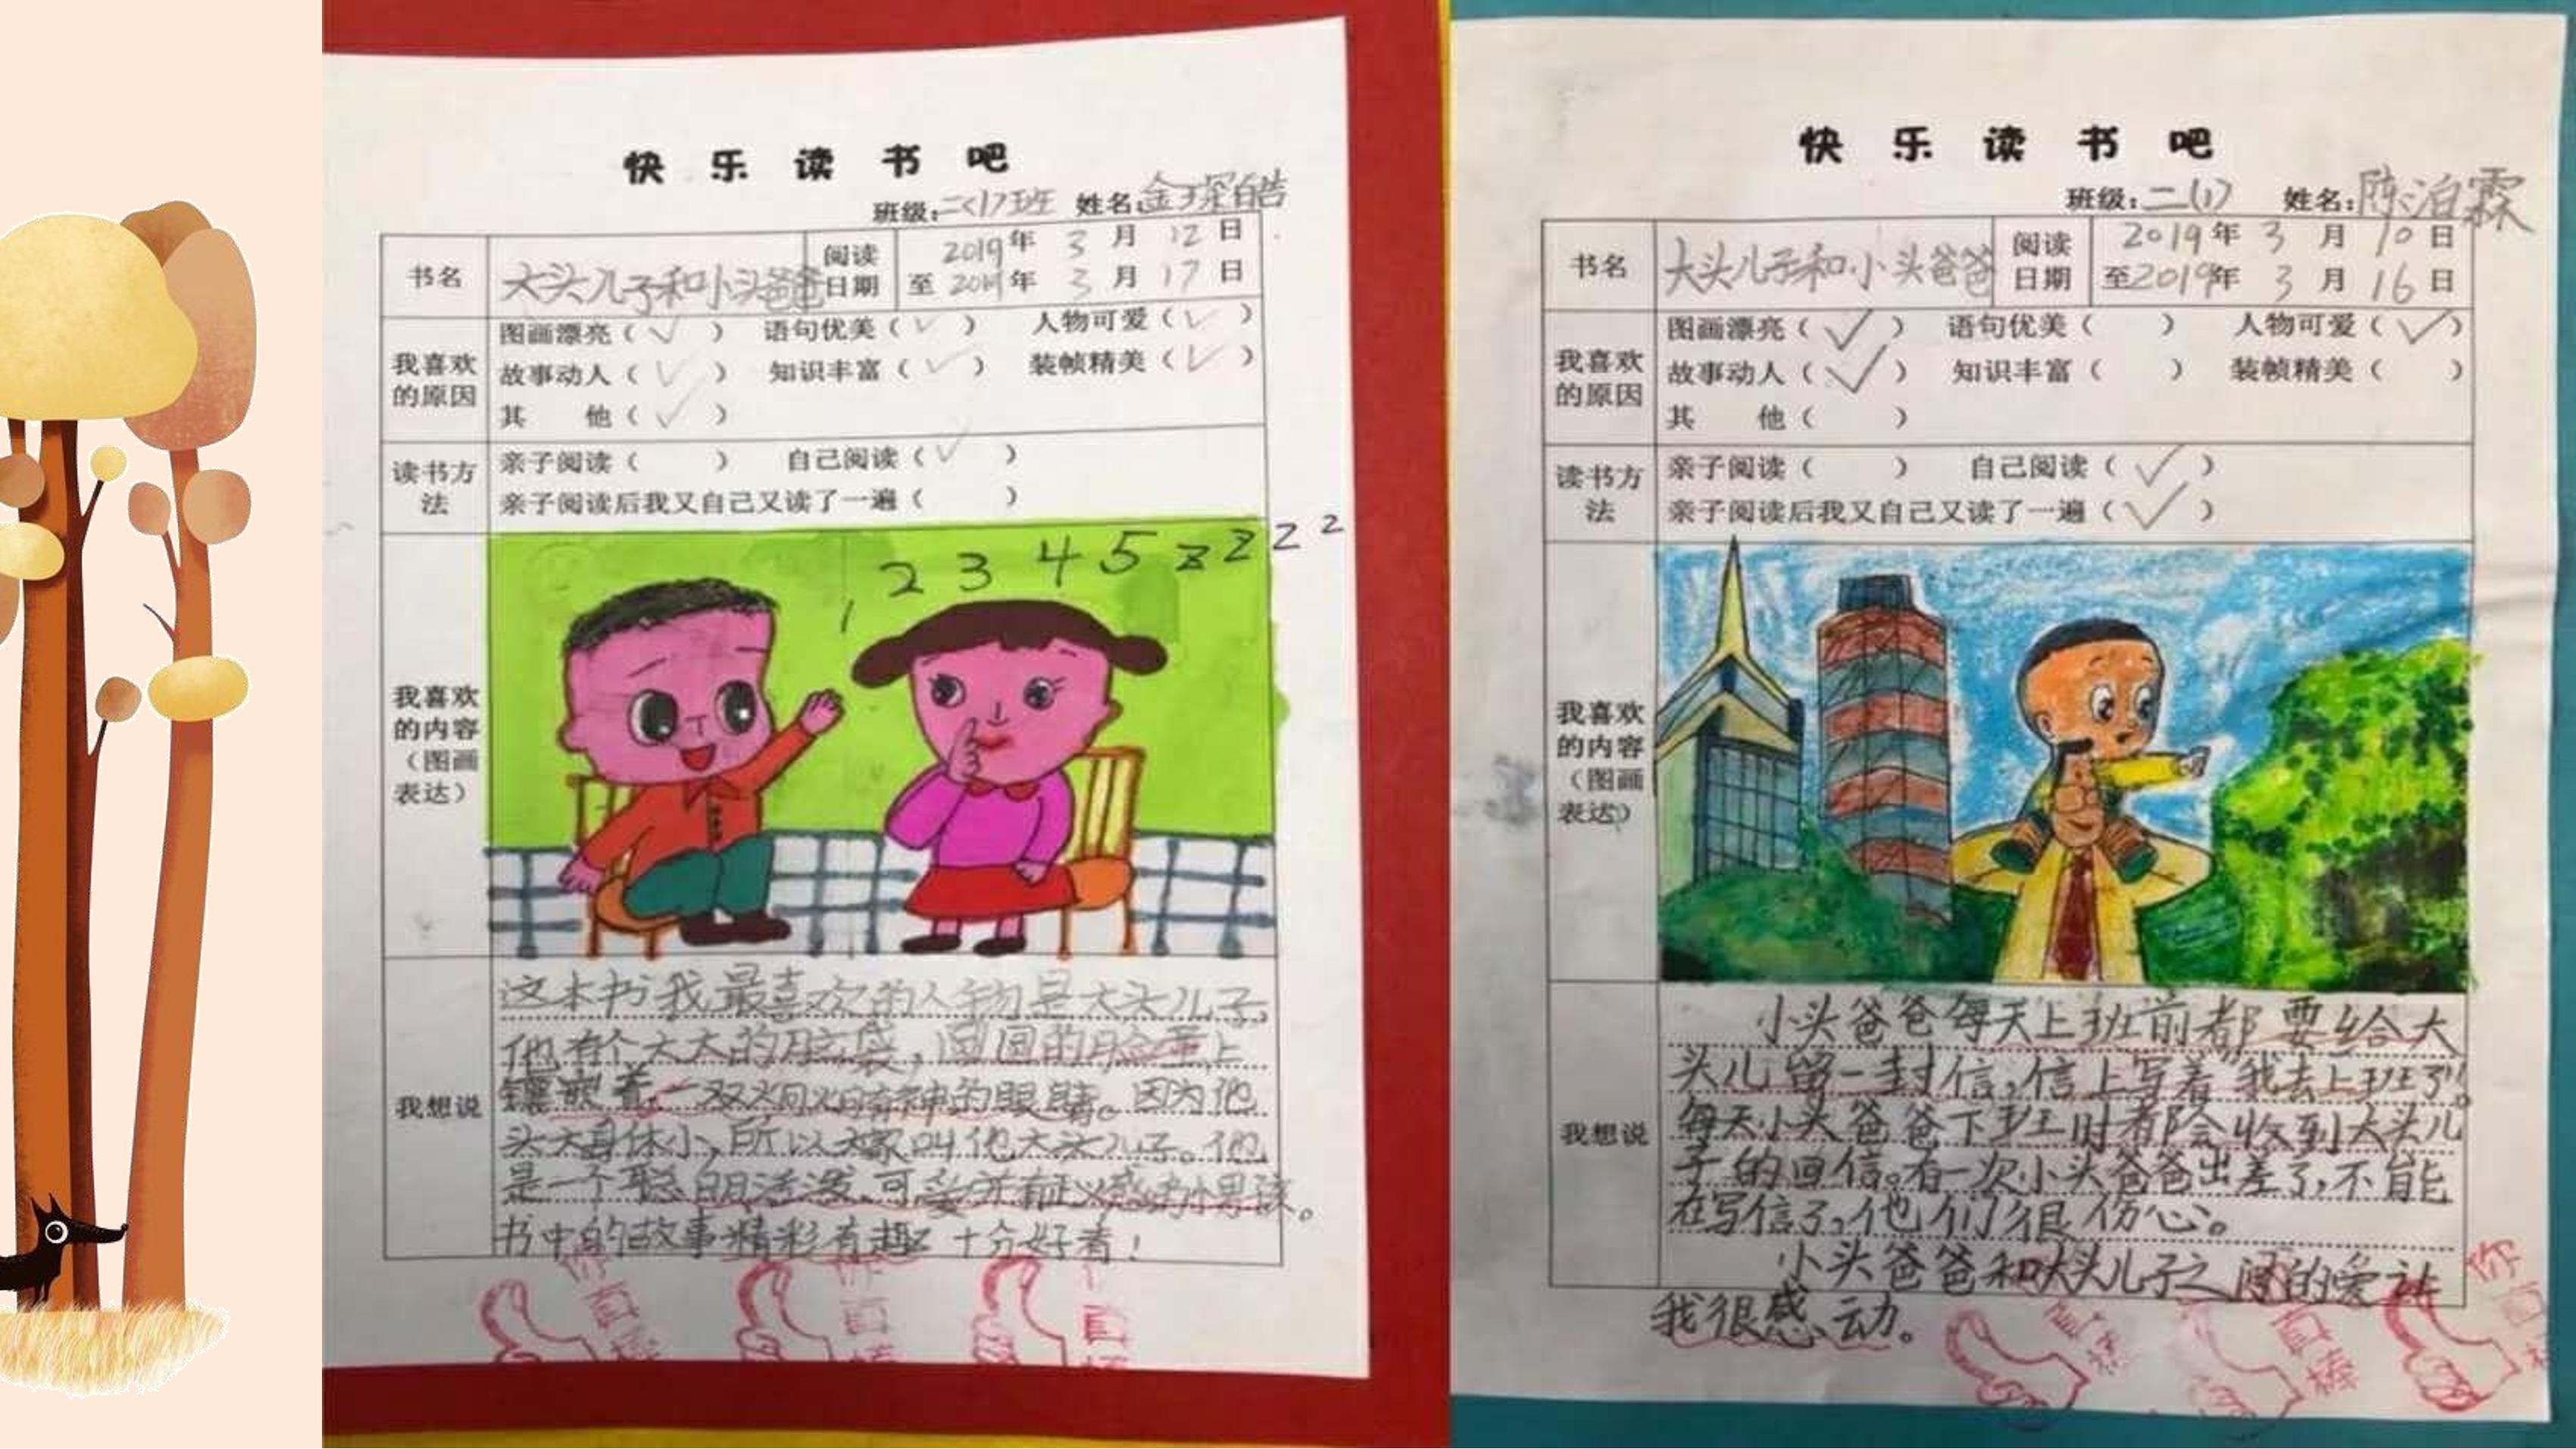 快乐读书吧
班级:二(1)班 姓名:金琛皓
书名 大头儿子和小头爸爸 阅读日期 2019年3月12日
至2019年3月17日
我喜欢的原因 图画漂亮(✓) 语句优美(✓) 人物可爱(✓)
故事动人(✓) 知识丰富(✓) 装帧精美(✓)
其 他(✓)
读书方法 亲子阅读( ) 自己阅读(✓)
亲子阅读后我又自己又读了一遍( )
我喜欢的内容(图画表达)
1 2 3 4 5 z z z z
我想说
这本书我最喜欢的人物是大头儿子,
他有个大大的脑袋,圆圆的脸蛋上
镶嵌着一双炯炯有神的眼睛。因为他
头大身体小,所以大家叫他大头儿子。他
是一个聪明活泼、可爱并有正义感的小男孩。
书中的故事精彩有趣十分好看!
你真棒
你真棒
真棒
快乐读书吧
班级:二(1) 姓名:陈泊霖
书名 大头儿子和小头爸爸 阅读日期 2019年3月10日
至2019年3月16日
我喜欢的原因 图画漂亮(✓) 语句优美( ) 人物可爱(✓)
故事动人(✓) 知识丰富( ) 装帧精美( )
其 他( )
读书方法 亲子阅读( ) 自己阅读(✓)
亲子阅读后我又自己又读了一遍(✓)
我喜欢的内容(图画表达)
我想说
小头爸爸每天上班前都要给大
头儿留一封信,信上写着"我去上班了"。
每天小头爸爸下班时都会收到大头儿
子的回信。有一次小头爸爸出差了,不能
在写信了,他们很伤心。
小头爸爸和大头儿子之间的爱让
我很感动。
真棒
真棒
你真棒